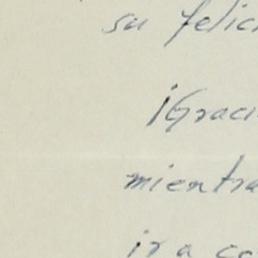 su felici
¡Graci
mientra
ir a co